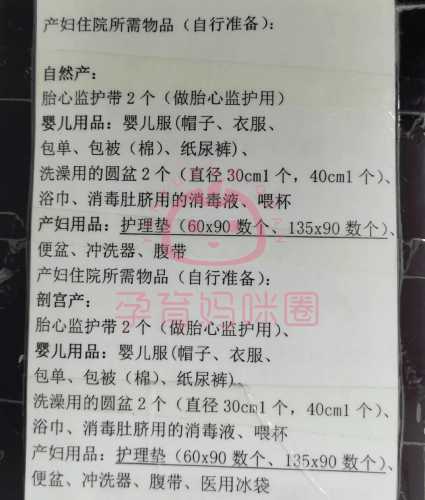 产妇住院所需物品（自行准备）：
自然产：
胎心监护带2个（做胎心监护用）
婴儿用品：婴儿服(帽子、衣服、
包单、包被（棉）、纸尿裤)、
洗澡用的圆盆2个（直径30cm1个，40cm1个）、
浴巾、消毒肚脐用的消毒液、喂杯
产妇用品：护理垫（60x90数个、135x90数个）、
便盆、冲洗器、腹带
产妇住院所需物品（自行准备）：
剖宫产：
胎心监护带2个（做胎心监护用）、
婴儿用品：婴儿服(帽子、衣服、
包单、包被（棉）、纸尿裤)、
洗澡用的圆盆2个（直径30cm1个，40cm1个）、
浴巾、消毒肚脐用的消毒液、喂杯
产妇用品：护理垫（60x90数个、135x90数个）、
便盆、冲洗器、腹带、医用冰袋
孕育妈咪圈